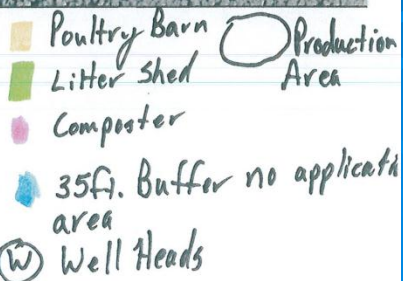 Poultry Barn
Production Area
Litter Shed
Composter
35ft. Buffer no applicati
area
W Well Heads